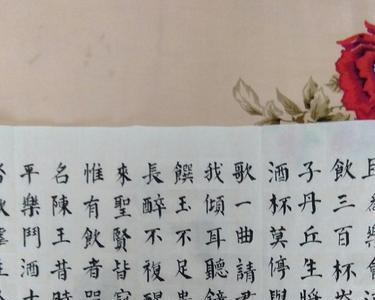 飲三百杯岑
子丹丘生將
酒杯莫停與
歌一曲請君
我傾耳聽鐘
饌玉不足貴
長醉不複醒
來聖賢皆寂
惟有飲者留
名陳王昔時
平樂鬥酒十